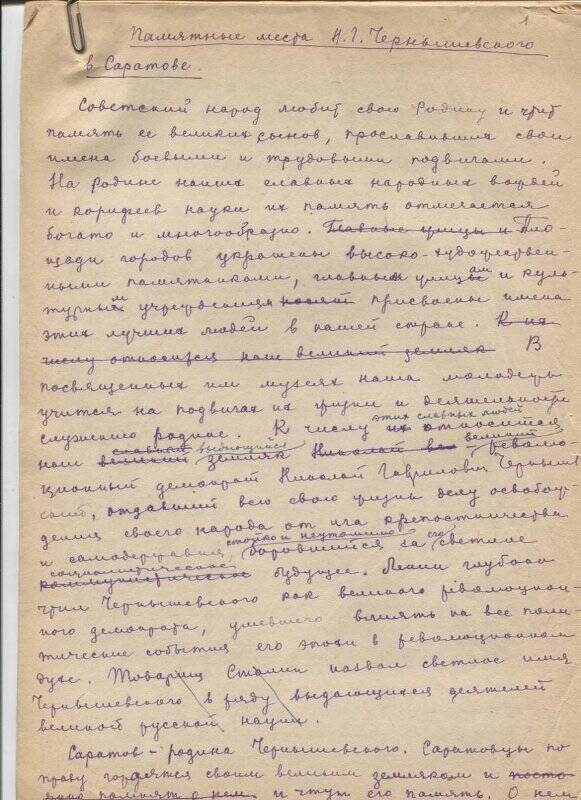 1
Памятные места Н.Г. Чернышевского
в Саратове.
Советский народ любит свою Родину и чтит
память ее великих сынов, прославивших свои
имена боевыми и трудовыми подвигами.
На родине наших славных народных вождей
и корифеев науки их память отмечается
богато и многообразно. Главные улицы и Пло-
щади городов украшены высоко-художествен-
ными памятниками, главным улицам и куль-
турным учреждениям носят присвоены имена
этих лучших людей в нашей стране. К их
числу относится наш великий земляк В
посвященных им музеях наша молодежь
учится на подвигах их жизни и деятельности
служению родине. К числу этих славных людей относится
наш великий славный выдающийся земляк Николай великий револю-
ционный демократ Николай Гаврилович Чернышев
ский, отдавший всю свою жизнь делу освобож-
дения своего народа от ига крепостничества
и самодержавия, стойко и неутомимо боровшийся за его светлое
социалистическое коммунистическое будущее. Ленин глубоко
чтил Чернышевского как великого революцион-
ного демократа, умевшего влиять на все поли-
тические события его эпохи в революционном
духе. Товарищ Сталин назвал светлое имя
Чернышевского в ряду выдающихся деятелей
великой русской нации.
Саратов – родина Чернышевского. Саратовцы по
праву гордятся своим великим земляком и посто-
янно помнят о нем и чтут его память. О нем